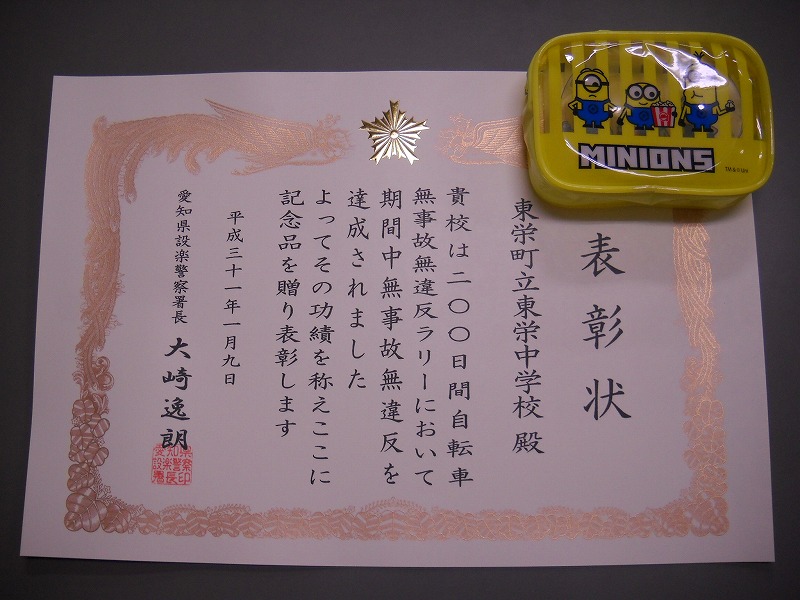 表彰状
東栄町立東栄中学校 殿
貴校は二〇〇日間自転車
無事故無違反ラリーにおいて
期間中無事故無違反を
達成されました
よってその功績を称えここに
記念品を贈り表彰します
平成三十一年一月九日
愛知県設楽警察署長 大崎逸朗
MINIONS